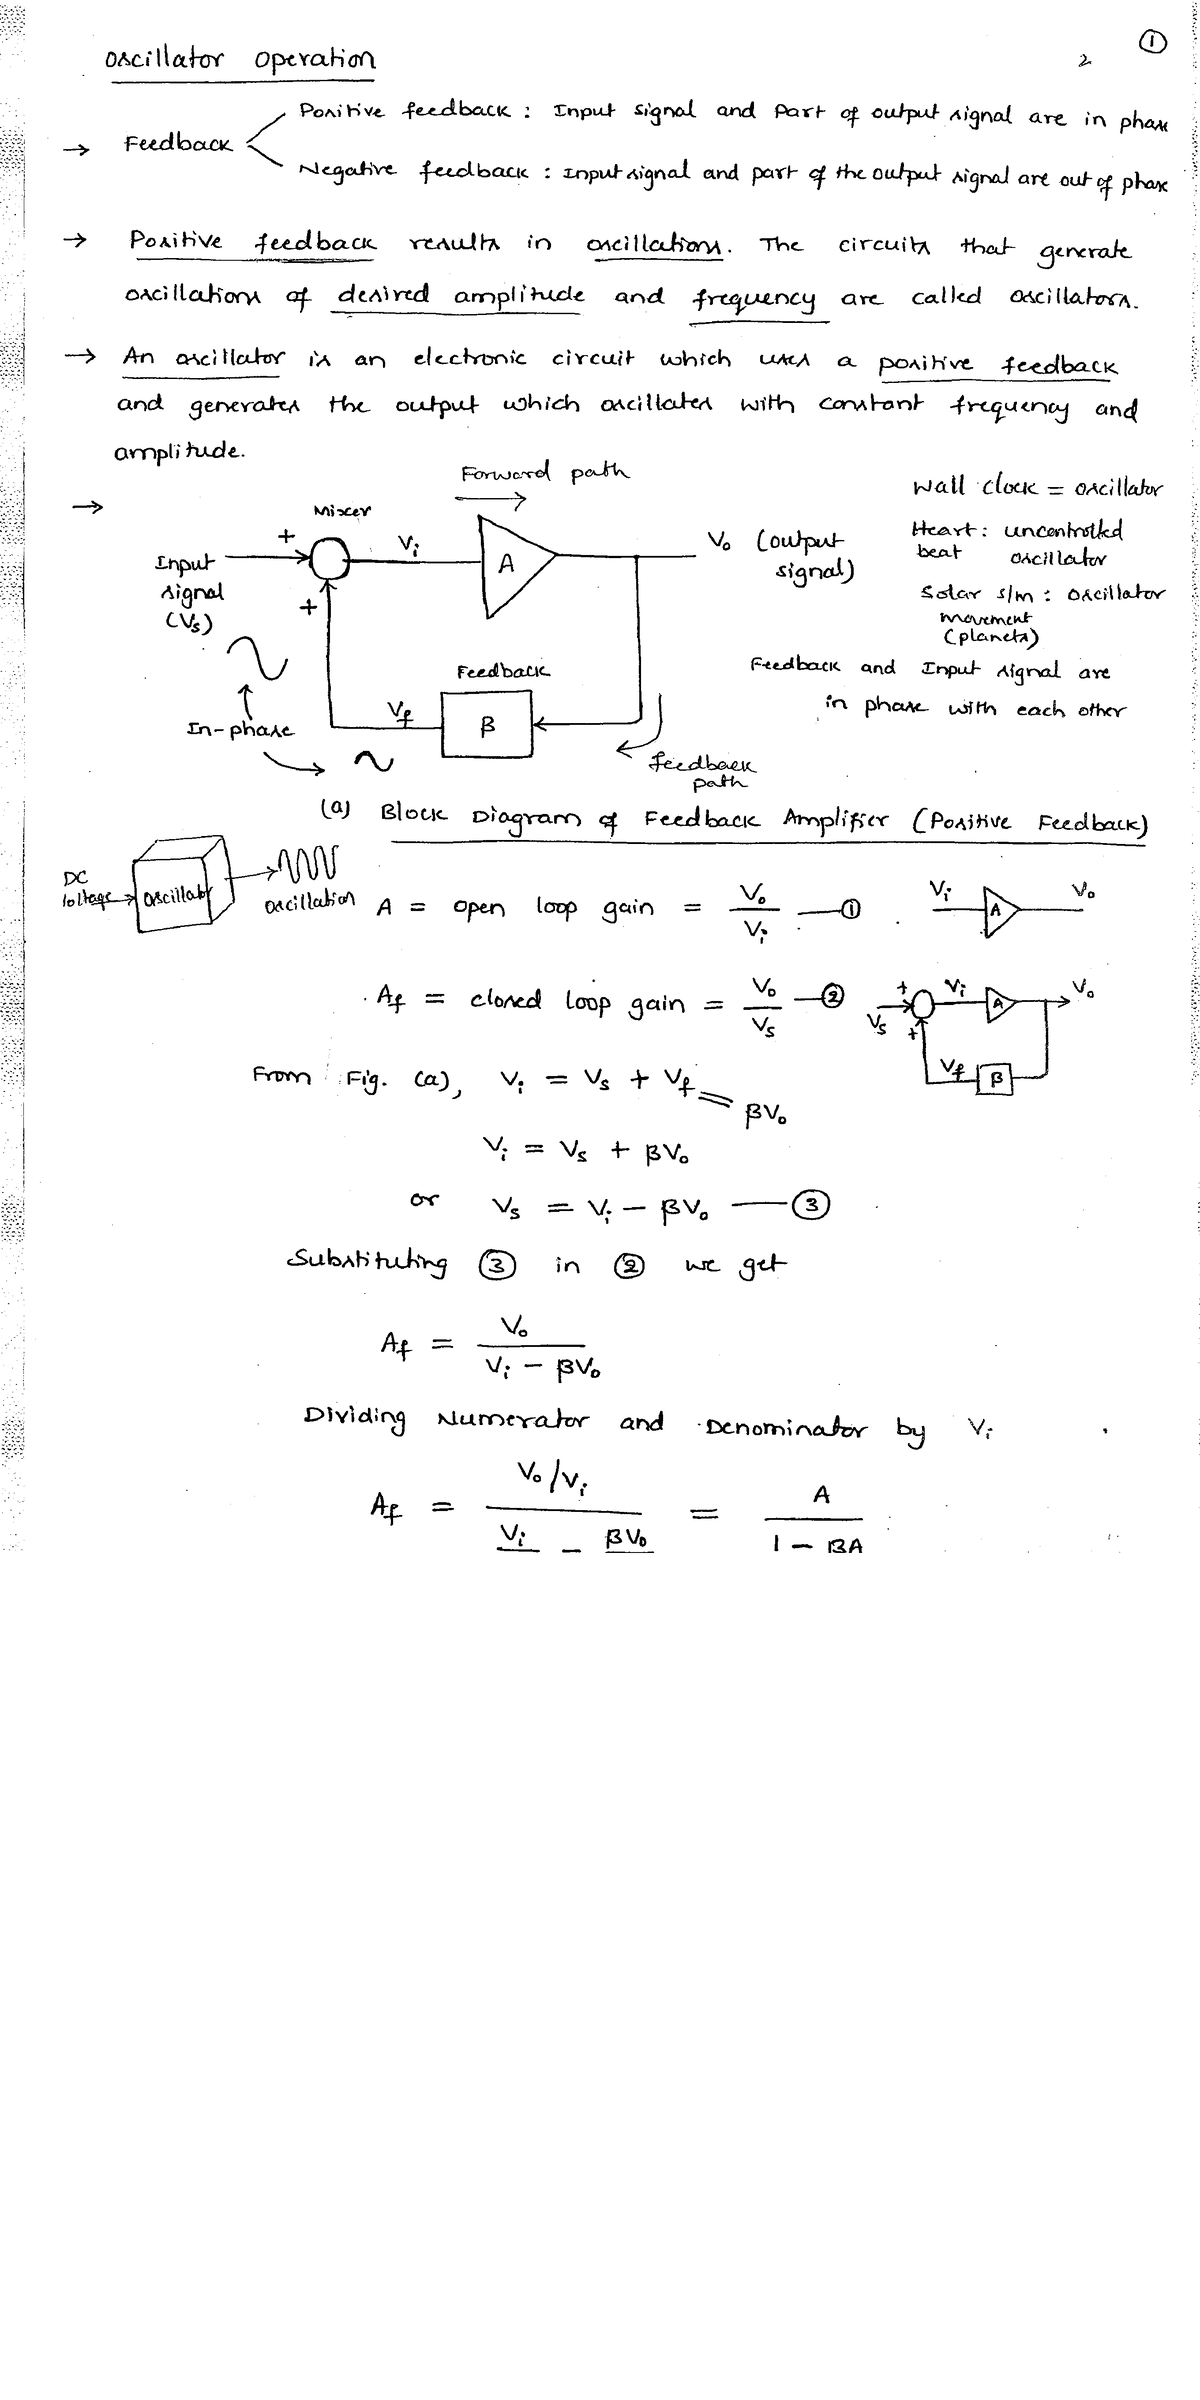 ①
2
Oscillator Operation
→ Feedback
Positive feedback : Input signal and part of output signal are in phase
Negative feedback : Input signal and part of the output signal are out of phase
→ Positive feedback results in oscillations. The circuits that generate
oscillations of desired amplitude and frequency are called oscillators.
→ An oscillator is an electronic circuit which uses a positive feedback
and generates the output which oscillates with constant frequency and
amplitude.
→
Forward path
Mixer
+
Vi
A
Vo (output
signal)
Input
signal
(Vs)
+
Feedback
Vf
β
In-phase
feedback
path
Wall clock = oscillator
Heart : uncontrolled
beat oscillator
Solar s/m : oscillator
movement
(planets)
Feedback and Input signal are
in phase with each other
(a) Block Diagram of Feedback Amplifier (Positive Feedback)
DC
Voltage
Oscillator
oscillation
A = open loop gain = Vo/Vi —①
Vi A Vo
Af = closed loop gain = Vo/Vs —②
+ Vi A Vo
Vs +
Vf β
From Fig. (a), Vi = Vs + Vf = βVo
Vi = Vs + βVo
or Vs = Vi − βVo —③
Substituting ③ in ② we get
Af = Vo / Vi − βVo
Dividing Numerator and Denominator by Vi
Af = Vo/Vi / Vi − βVo = A / 1 − βA